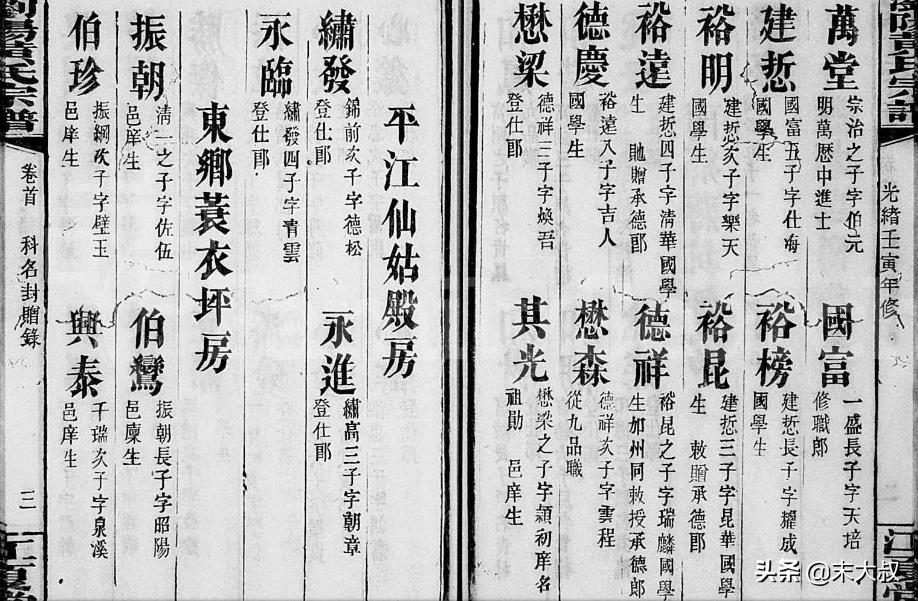 光緒壬寅年修
萬堂 宗治之子字伯元
明萬歷中進士
國富 一盛長子字天培
修職郎
建悊 國富五子字仕海
國學生
裕榜 建悊長子字耀成
國學生
裕明 建悊次子字樂天
國學生
裕昆 建悊三子字昆華國學
生 敕贈承德郎
裕遠 建悊四子字清華國學
生 貤贈承德郎
德祥 裕昆之子字瑞麟國學
生加州同敕授承德郎
德慶 裕遠八子字吉人
國學生
懋森 德祥次子字雲程
從九品職
懋梁 德祥三子字煥吾
登仕郎
其光 懋梁之子字穎初庠名
祖勛 邑庠生
平江仙姑殿房
繡發 錦前次子字德松
登仕郎
永進 繡高三子字朝章
登仕郎
永臨 繡發四子字青雲
登仕郎
東鄉蓑衣坪房
振朝 清一之子字佐伍
邑庠生
伯鸞 振朝長子字昭陽
邑廩生
伯珍 振綱次子字璧玉
邑庠生
興泰 千瑞次子字泉溪
邑庠生
瀏陽黃氏宗譜
卷首 科名封贈錄
三
头条 @末大叔